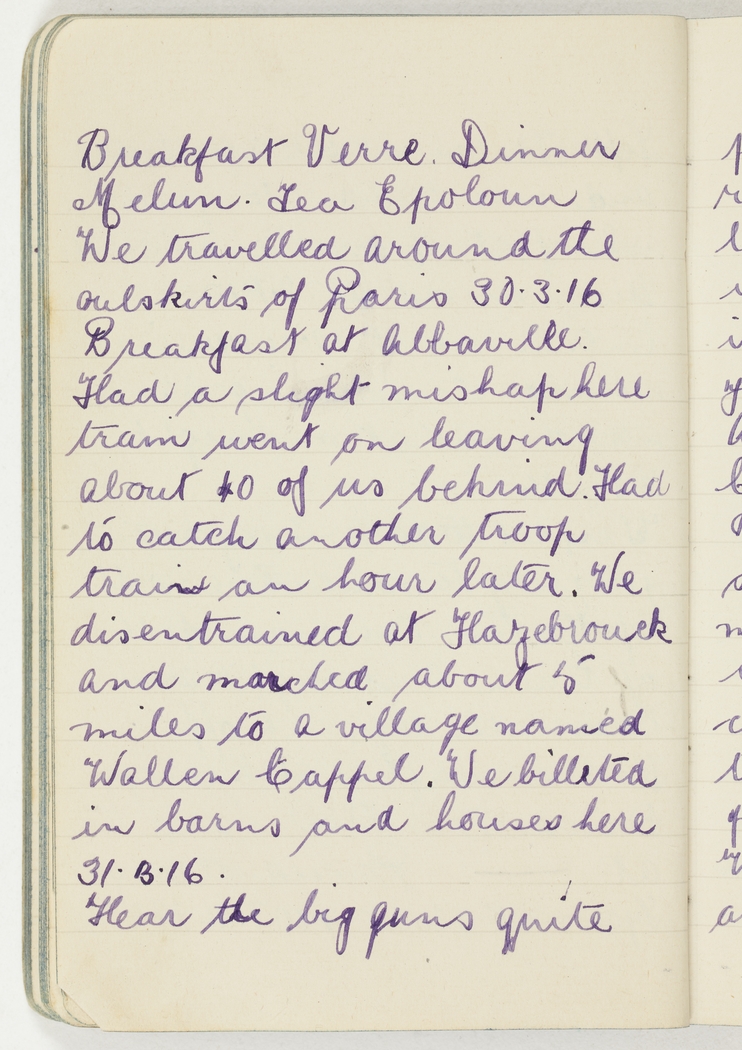 Breakfast Verre. Dinner
Melun. Tea Epoloun
We travelled around the
outskirts of Paris 30.3.16
Breakfast at Abbaville.
Had a slight mishap here
train went on leaving
about 40 of us behind. Had
to catch another troop
train an hour later. We
disentrained at Hazebrouck
and marched about 5
miles to a village named
Wallen Cappel. We billeted
in barns and houses here
31.3.16.
Hear the big guns quite